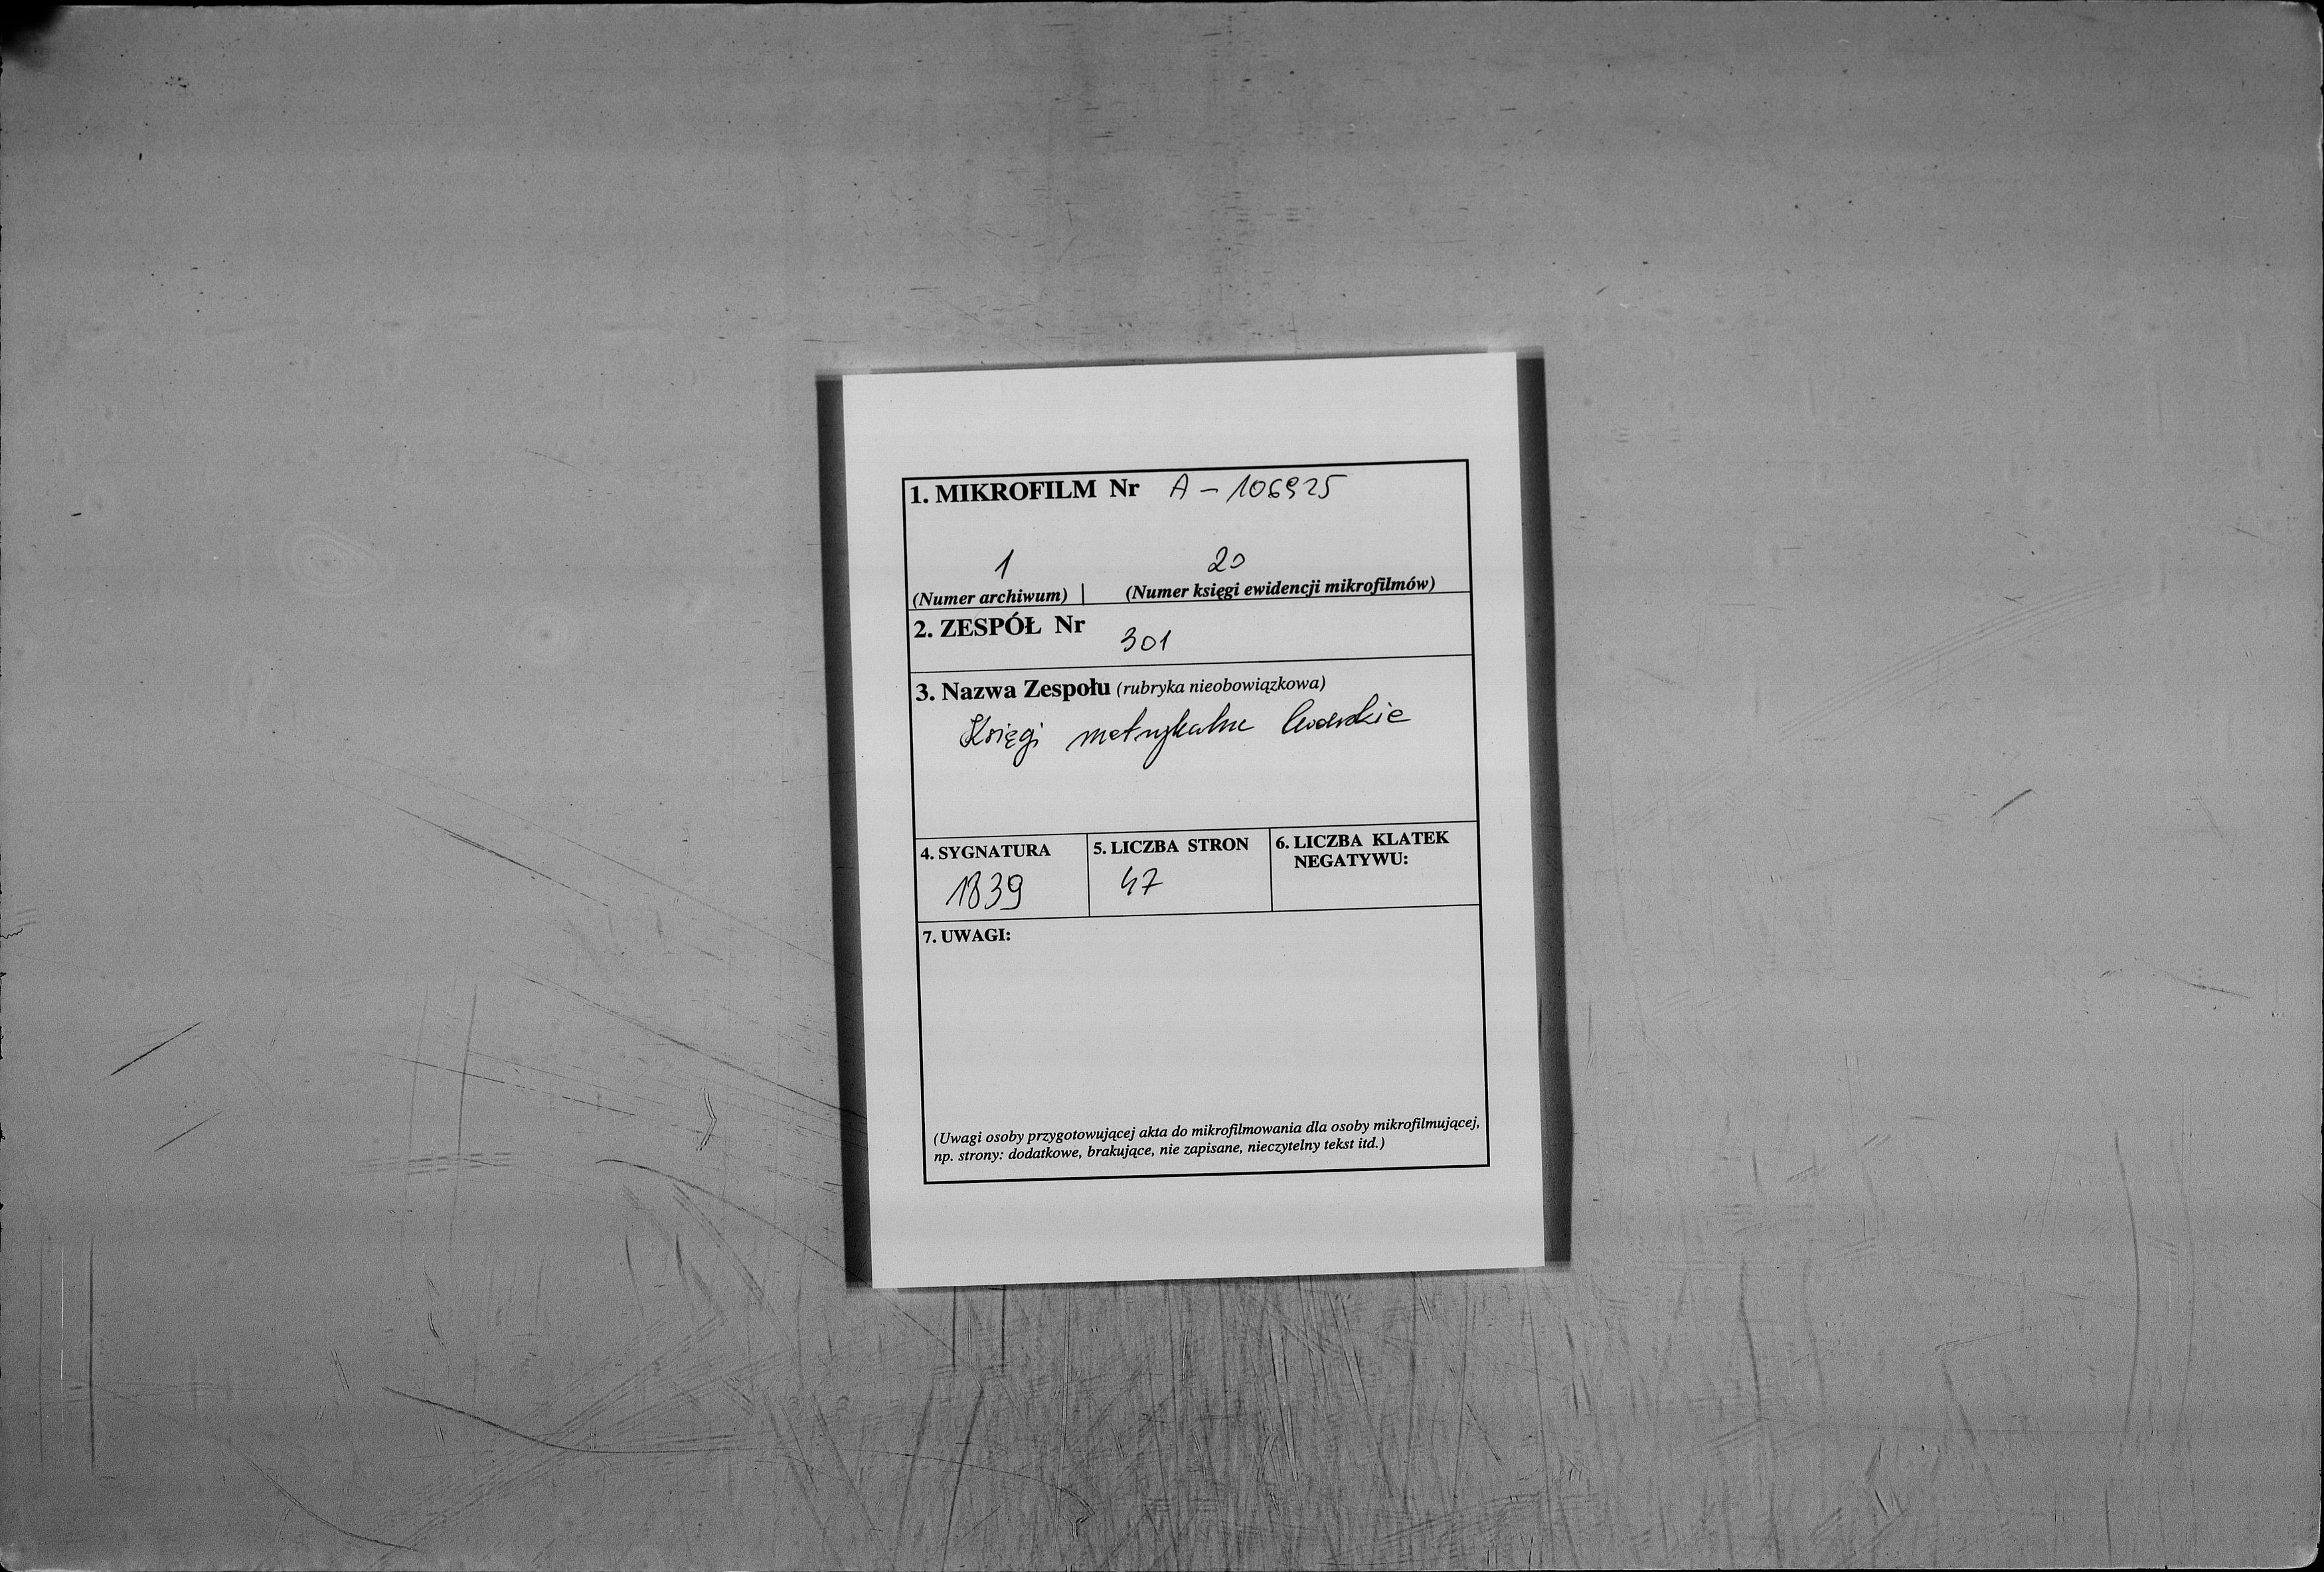 1. MIKROFILM Nr A - 106925
1 20
(Numer archiwum) | (Numer księgi ewidencji mikrofilmów)
2. ZESPÓŁ Nr
301
3. Nazwa Zespołu (rubryka nieobowiązkowa)
Księgi metrykalne lwowskie
4. SYGNATURA 5. LICZBA STRON 6. LICZBA KLATEK
NEGATYWU:
1839 47
7. UWAGI:
(Uwagi osoby przygotowującej akta do mikrofilmowania dla osoby mikrofilmującej,
np. strony: dodatkowe, brakujące, nie zapisane, nieczytelny tekst itd.)